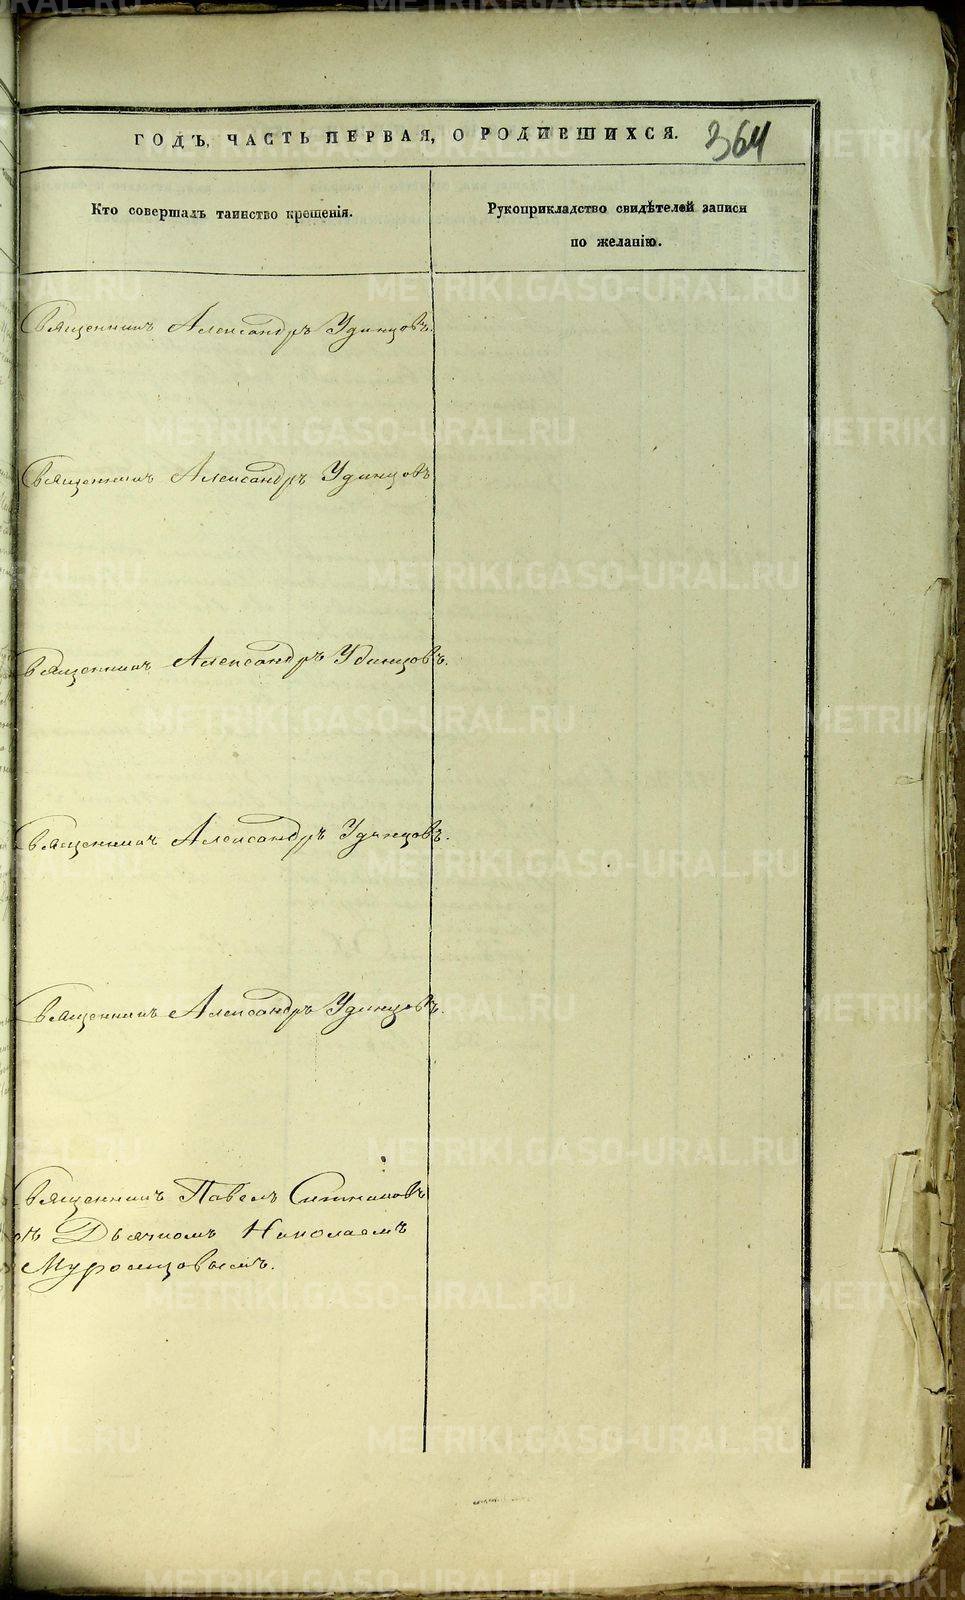 ГОДЪ, ЧАСТЬ ПЕРВАЯ, О РОДИВШИХСЯ.
364
Кто совершалъ таинство крещенія.
Рукоприкладство свидѣтелей записи
по желанію.
Священникъ Александръ Удинцовъ.
Священникъ Александръ Удинцовъ
Священникъ Александръ Удинцовъ.
Священникъ Александръ Удинцовъ.
Священникъ Александръ Удинцовъ.
Священникъ Павелъ Ситниковъ
съ Дьячкомъ Николаемъ
Муромцовымъ.
METRIKI.GASO-URAL.RU